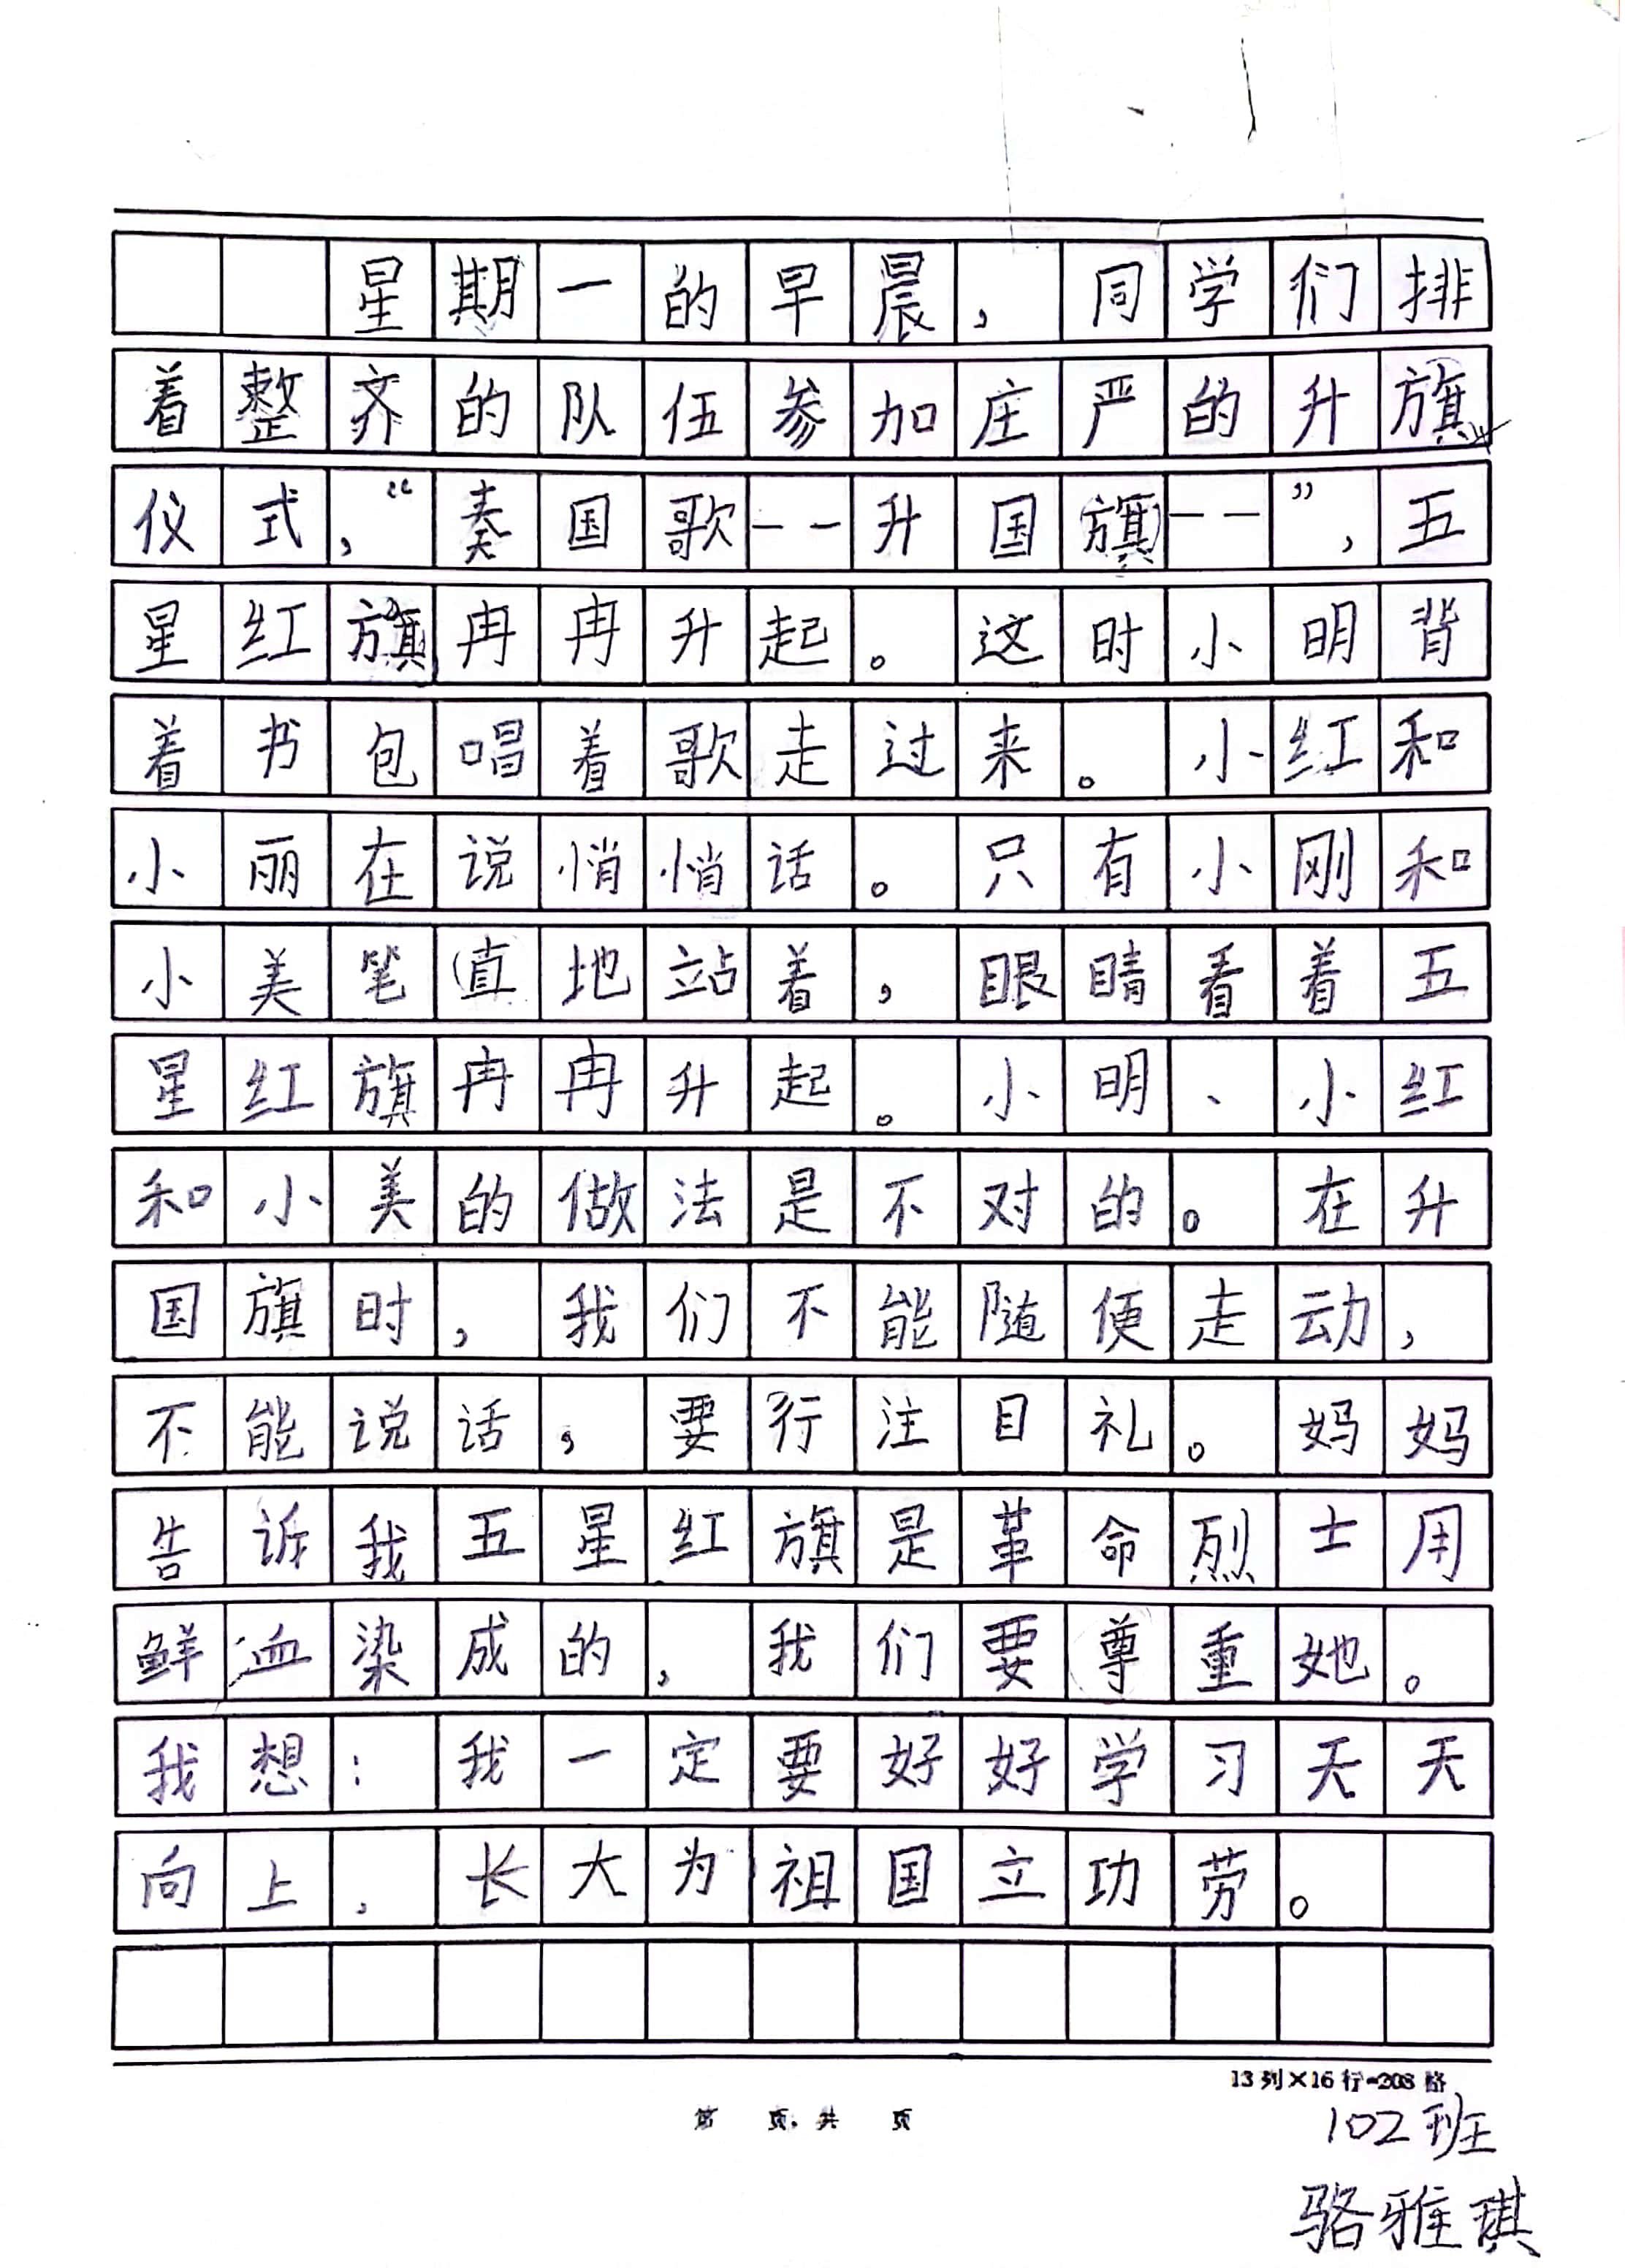 星期一的早晨，同学们排
着整齐的队伍参加庄严的升旗
仪式，“奏国歌——升国旗——”，五
星红旗冉冉升起。这时小明背
着书包唱着歌走过来。小红和
小丽在说悄悄话。只有小刚和
小美笔直地站着，眼睛看着五
星红旗冉冉升起。小明、小红
和小美的做法是不对的。在升
国旗时，我们不能随便走动，
不能说话，要行注目礼。妈妈
告诉我五星红旗是革命烈士用
鲜血染成的，我们要尊重她。
我想：我一定要好好学习天天
向上，长大为祖国立功劳。
13列×16行=208格
第 页，共 页
102班
骆雅琪